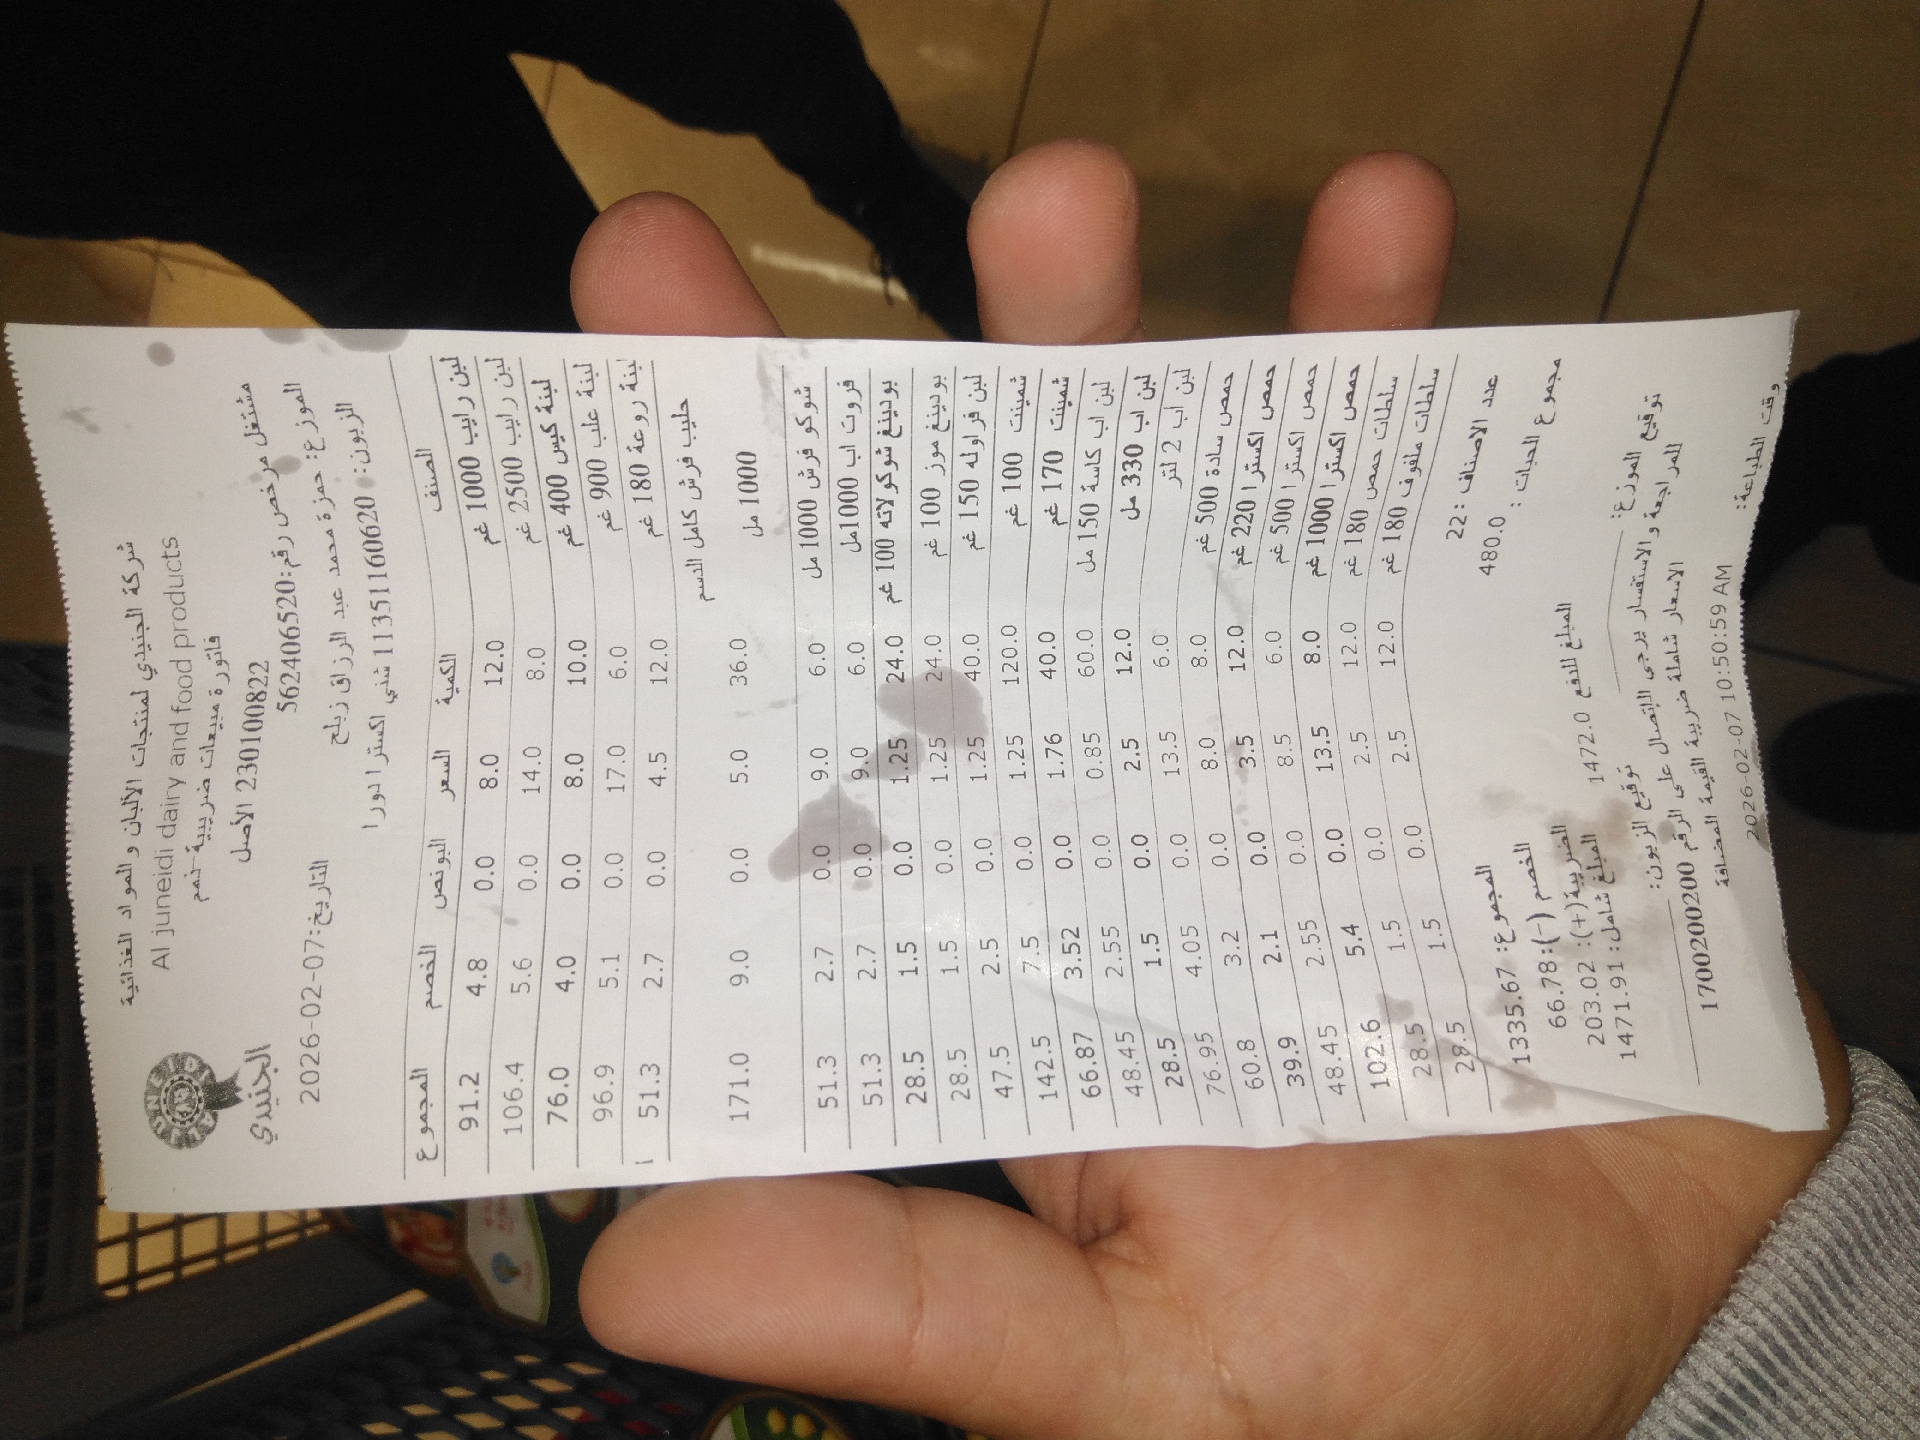 شركة الجنيدي لمنتجات الألبان والمواد الغذائية
Al juneidi dairy and food products
فاتورة مبيعات ضريبية -نعم
230100822 الأصل
مشتغل مرخص رقم:562406520
الجنيدي
الموزع: حمزة محمد عبد الرزاق زبلح
التاريخ:2026-02-07
الزبون: 11351160620 شني اكسترا دورا
الصنف الكمية السعر البونص الخصم المجموع
لبن رايب 1000 غم 12.0 8.0 0.0 4.8 91.2
لبن رايب 2500 غم 8.0 14.0 0.0 5.6 106.4
لبنة كيس 400 غم 10.0 8.0 0.0 4.0 76.0
لبنة علب 900 غم 6.0 17.0 0.0 5.1 96.9
لبنة روعة 180 غم 12.0 4.5 0.0 2.7 51.3
حليب فرش كامل الدسم
1000 مل 36.0 5.0 0.0 9.0 171.0
شوكو فرش 1000 مل 6.0 9.0 0.0 2.7 51.3
فروت اب 1000مل 6.0 9.0 0.0 2.7 51.3
بودينغ شوكولاته 100 غم 24.0 1.25 0.0 1.5 28.5
بودينغ موز 100 غم 24.0 1.25 0.0 1.5 28.5
لبن فراوله 150 غم 40.0 1.25 0.0 2.5 47.5
شمينت 100 غم 120.0 1.25 0.0 7.5 142.5
شمينت 170 غم 40.0 1.76 0.0 3.52 66.87
لبن اب كاسة 150 مل 60.0 0.85 0.0 2.55 48.45
لبن اب 330 مل 12.0 2.5 0.0 1.5 28.5
لبن اب 2 لتر 6.0 13.5 0.0 4.05 76.95
حمص سادة 500 غم 8.0 8.0 0.0 3.2 60.8
حمص اكسترا 220 غم 12.0 3.5 0.0 2.1 39.9
حمص اكسترا 500 غم 6.0 8.5 0.0 2.55 48.45
حمص اكسترا 1000 غم 8.0 13.5 0.0 5.4 102.6
سلطات حمص 180 غم 12.0 2.5 0.0 1.5 28.5
سلطات ملفوف 180 غم 12.0 2.5 0.0 1.5 28.5
عدد الاصناف :22
المجموع: 1335.67
مجموع الحبات : 480.0
الخصم (-):66.78
الضريبة(+): 203.02
المبلغ للدفع 1472.0
المبلغ شامل: 1471.91
توقيع الموزع:
توقيع الزبون:
للمراجعة والاستفسار يرجى الإتصال على الرقم 1700200200
الاسعار شاملة ضريبة القيمة المضافة
وقت الطباعة: 2026-02-07 10:50:59 AM